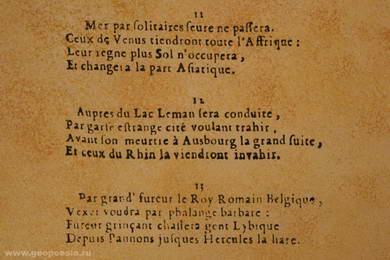 11
Mer par ſolitaires ſeure ne paſſera.
Ceux de Venus tiendront toute l'Affrique:
Leur regne plus Sol n'occupera,
Et changera la part Aſiatique.
12
Aupres du Lac Leman ſera conduite,
Par garſe eſtrange cité voulant trahir,
Avant ſon meurtre à Ausbourg la grand ſuite,
Et ceux du Rhin la viendront invahir.
13
Par grand' fureur le Roy Romain Belgique,
Vexer voudra par phalange barbare:
Fureur grinçant chaſſera gent Lybique
Depuis Pannons juſques Hercules la hare.
www.geopoesia.ru